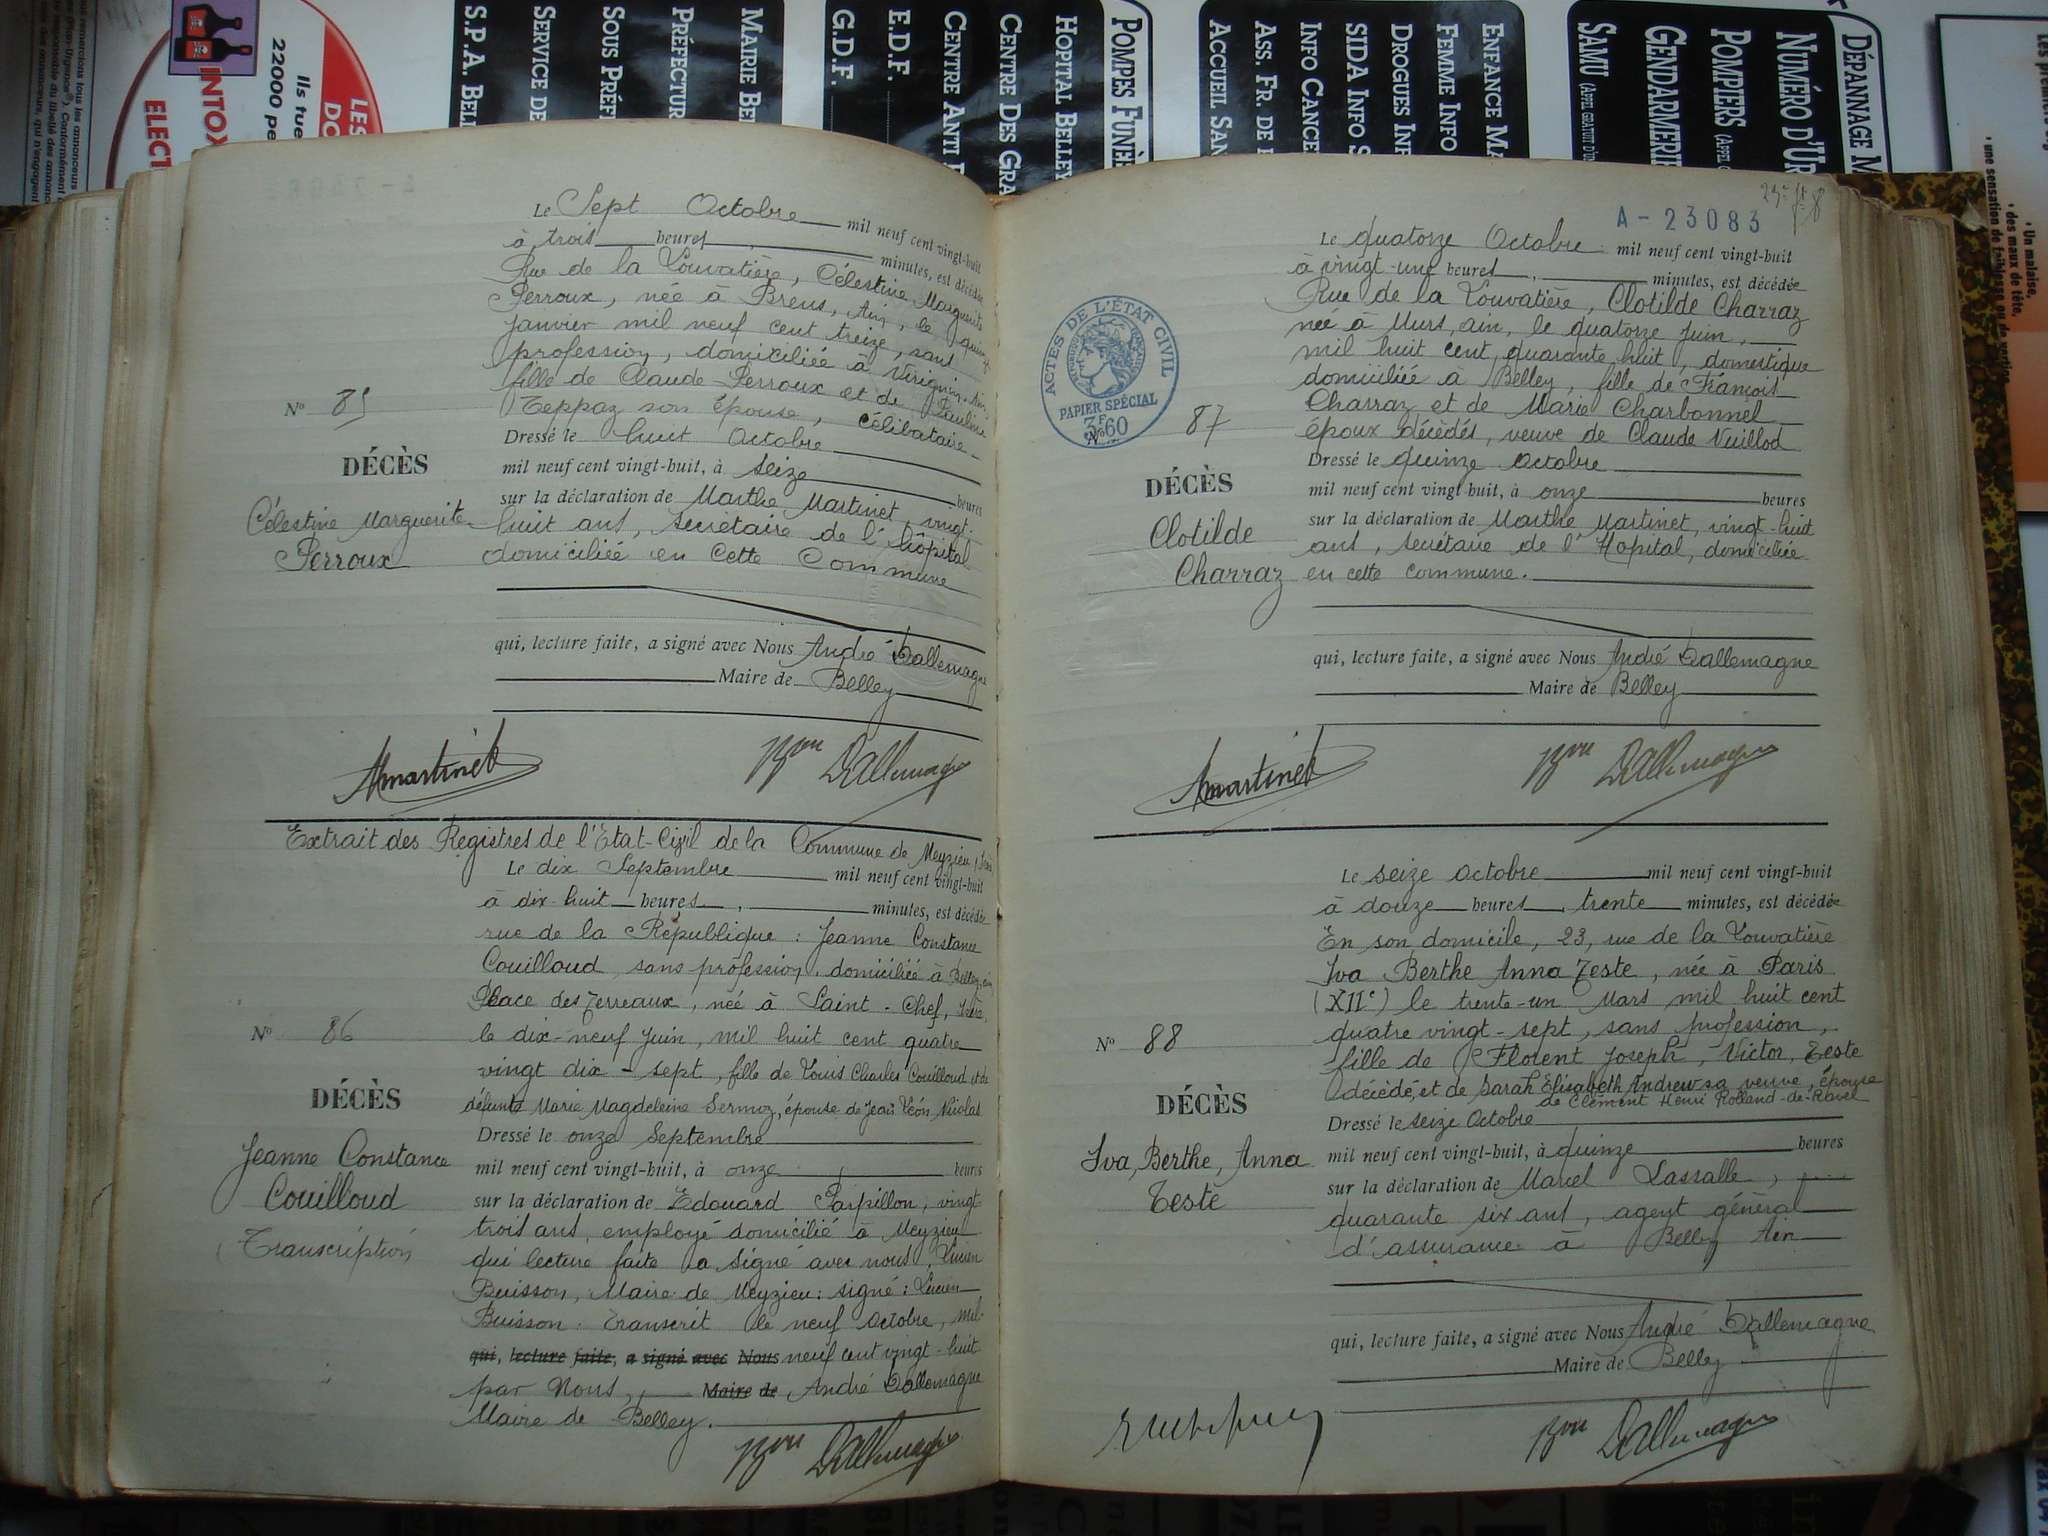 LES
DO
Ils tue
22000 pe
INTOX
ELECT
S.P.A. BELL
SERVICE DE
SOUS PRÉFE
PRÉFECTUR
MAIRIE BE
G.D.F.
E.D.F.
CENTRE ANTI
CENTRE DES GRA
HOPITAL BELLEY
POMPES FUNÈ
ACCUEIL SAN
ASS. FR. DE
INFO CANCE
SIDA INFO S
DROGUES INF
FEMME INFO
ENFANCE MA
SAMU (APPEL GRATUIT D'U
GENDARMERIE
POMPIERS (APPEL
NUMÉRO D'UR
DÉPANNAGE M
• Un malaise,
• des maux de tête,
• une sensation de faiblesse ou de vertige
Le Sept Octobre mil neuf cent vingt-huit
à trois heures, minutes, est décédée
Rue de la Louvatière, Célestine Marguerite
Perroux, née à Brens, Ain, le quinze
janvier mil neuf cent treize, sans
profession, domiciliée à Virignin, Ain,
fille de Claude Perroux et de Pauline
Teppaz son épouse, célibataire
Dressé le huit Octobre
mil neuf cent vingt-huit, à seize heures
sur la déclaration de Marthe Martinet, vingt-
huit ans, secrétaire de l'hôpital
domiciliée en cette Commune
N° 85
DÉCÈS
Célestine Marguerite
Perroux
qui, lecture faite, a signé avec Nous André Dallemagne
Maire de Belley
Mmartinet
Bon Dallemagne
Extrait des Registres de l'Etat-Civil de la Commune de Meyzieu, Isère
Le dix Septembre mil neuf cent vingt-huit
à dix-huit heures, minutes, est décédée
rue de la République : Jeanne Constance
Couilloud, sans profession, domiciliée à Belley, ain
Place des Terreaux, née à Saint-Chef, Isère,
le dix-neuf Juin, mil huit cent quatre
vingt dix-sept, fille de Louis Charles Couilloud et de
défunte Marie Magdeleine Sermoz, épouse de Jean Léon Nicolas
Dressé le onze Septembre
mil neuf cent vingt-huit, à onze heures
sur la déclaration de Edouard Papillon, vingt-
trois ans, employé domicilié à Meyzieu
qui lecture faite a signé avec nous, Lucien
Buisson, Maire de Meyzieu : signé : Lucien
Buisson. Transcrit le neuf Octobre, mil-
qui, lecture faite, a signé avec Nous neuf cent vingt-huit
par Nous, Maire de André Dallemagne
Maire de Belley.
N° 86
DÉCÈS
Jeanne Constance
Couilloud
Transcription
Bon Dallemagne
A-23083
ACTES DE L'ÉTAT CIVIL
PAPIER SPÉCIAL
3F60
Le quatorze Octobre mil neuf cent vingt-huit
à vingt-une heures, minutes, est décédée
Rue de la Louvatière, Clotilde Charraz
née à Murs, ain, le quatorze Juin,
mil huit cent quarante huit, domestique
domiciliée à Belley, fille de François
Charraz et de Marie Charbonnel
époux décédés, veuve de Claude Vuillod
Dressé le quinze Octobre
mil neuf cent vingt-huit, à onze heures
sur la déclaration de Marthe Martinet, vingt-huit
ans, secrétaire de l'Hopital, domiciliée
en cette commune.
N° 87
DÉCÈS
Clotilde
Charraz
qui, lecture faite, a signé avec Nous André Dallemagne
Maire de Belley
Mmartinet
Bon Dallemagne
Le seize Octobre mil neuf cent vingt-huit
à douze heures, trente minutes, est décédée
En son domicile, 23, rue de la Louvatière
Iva Berthe Anna Teste, née à Paris
(XIIe) le trente-un Mars mil huit cent
quatre vingt-sept, sans profession,
fille de Florent Joseph, Victor, Teste
décédé, et de Sarah Elisabeth Andrew sa veuve, épouse
de Clément Henri Rolland-de-Ravel
Dressé le seize Octobre
mil neuf cent vingt-huit, à quinze heures
sur la déclaration de Marcel Lassalle,
quarante six ans, agent général
d'assurance à Belley Ain
N° 88
DÉCÈS
Iva, Berthe, Anna
Teste
qui, lecture faite, a signé avec Nous André Dallemagne
Maire de Belley
Bon Dallemagne